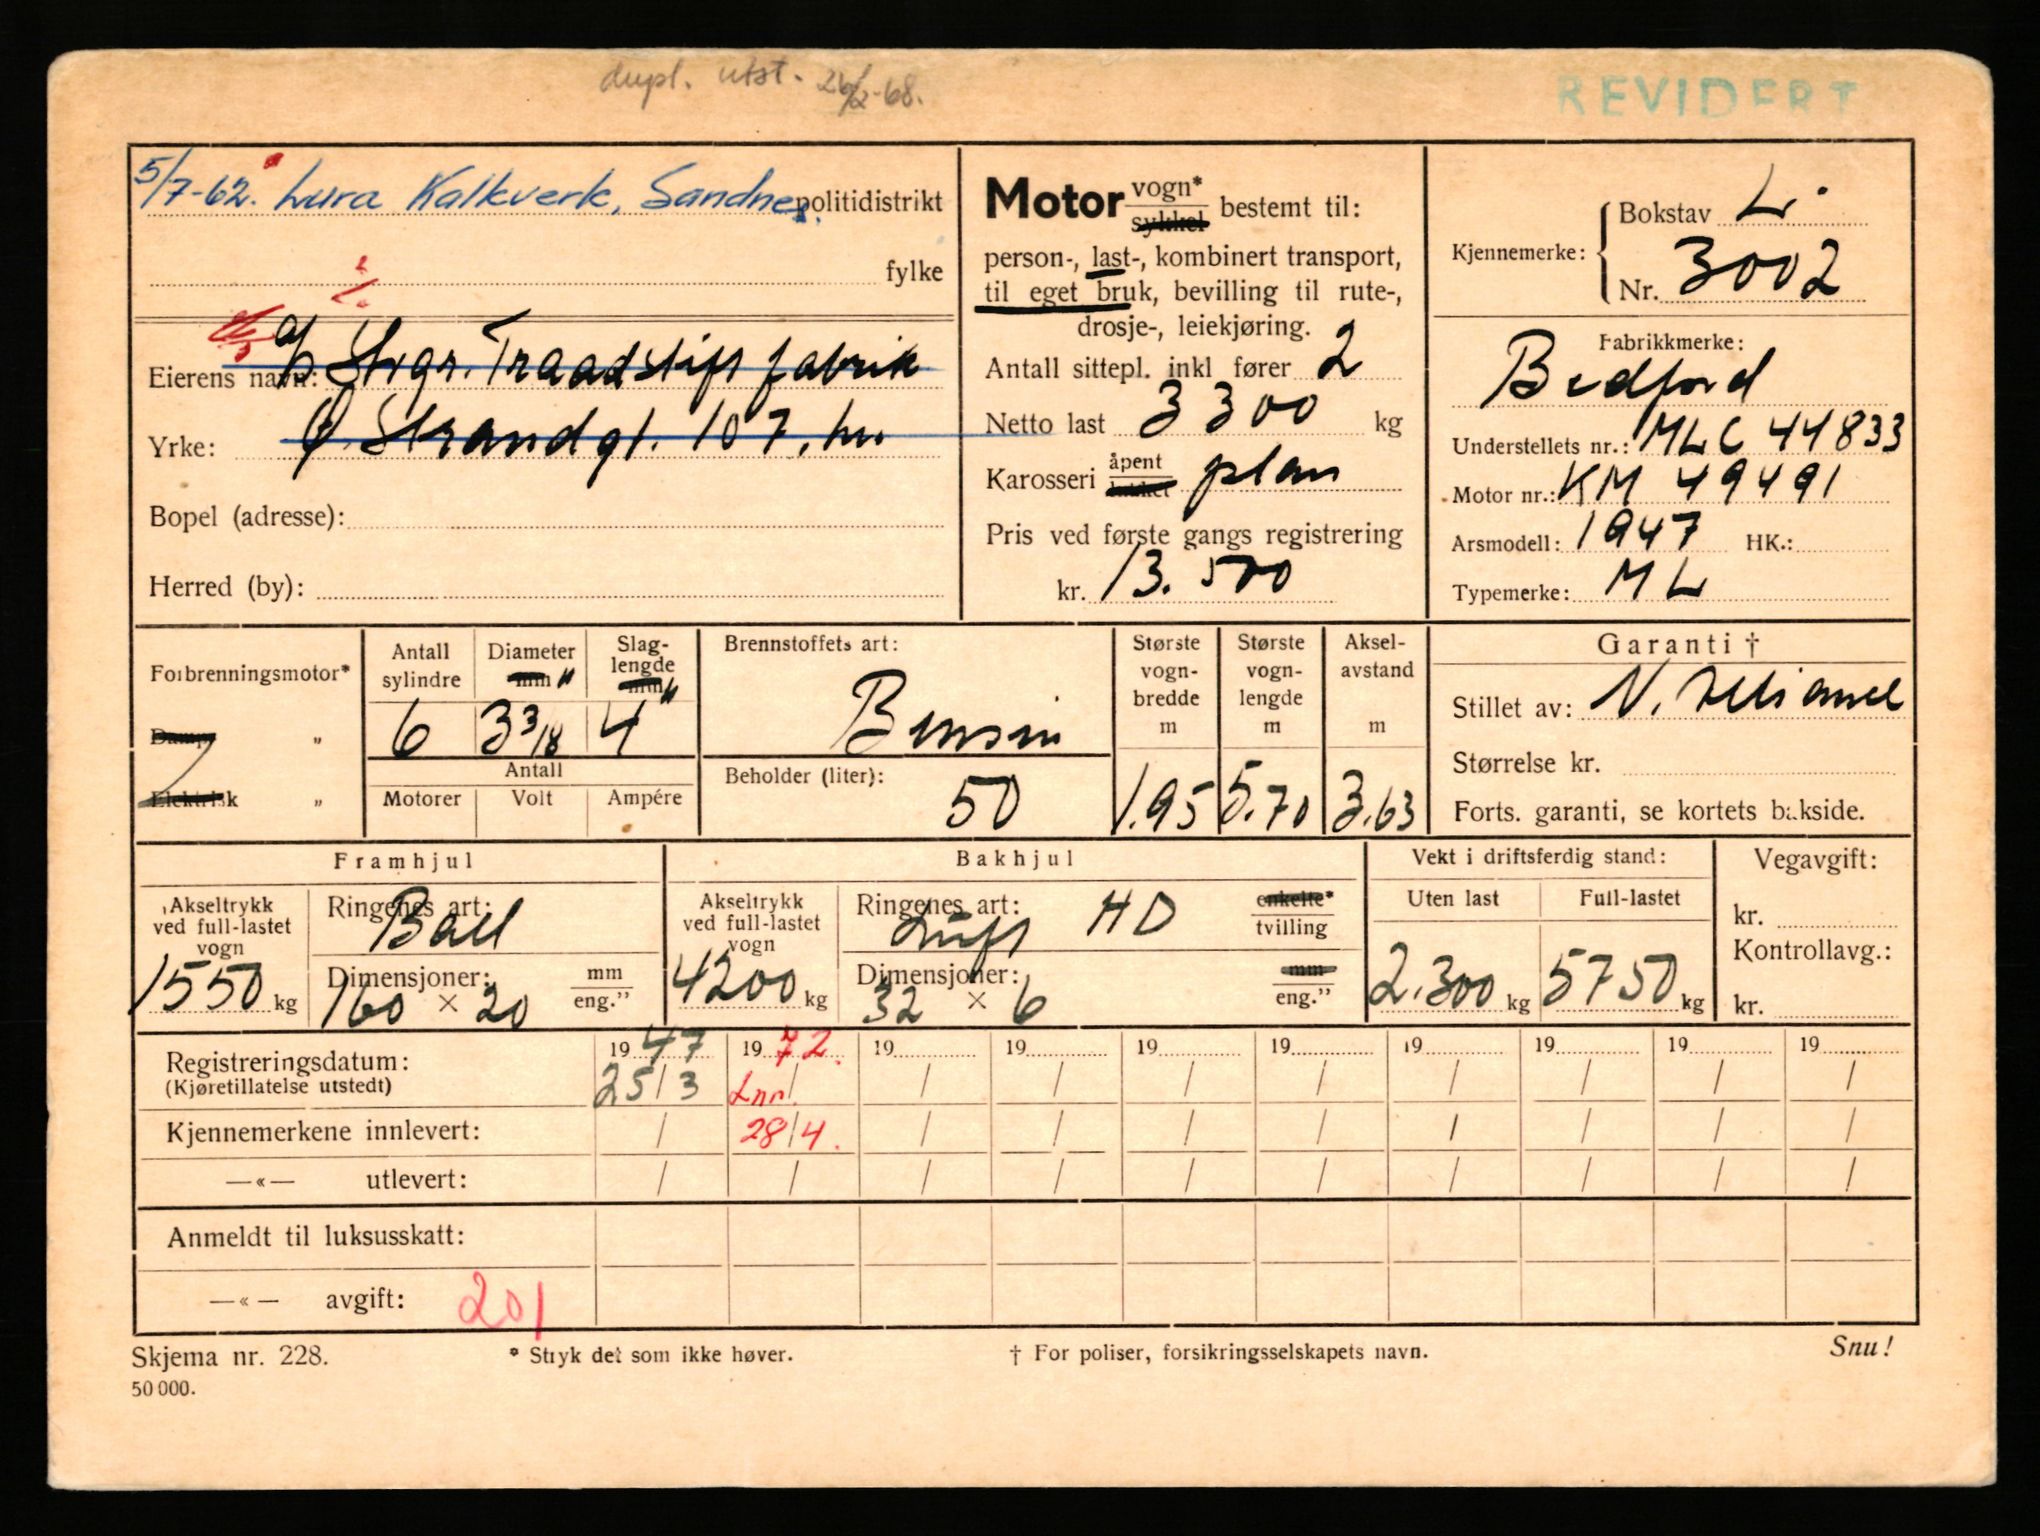 dupl. utst. 26/2-68.
REVIDERT
5/7-62. Lura Kalkverk, Sandnes. politidistrikt
fylke
Eierens navn: A/S Stvgr. Traadstift fabrik
Yrke: Ø. Strandgt. 107, hv.
Bopel (adresse):
Herred (by):
Motor vogn* sykkel bestemt til:
person-, last-, kombinert transport,
til eget bruk, bevilling til rute-,
drosje-, leiekjøring.
Antall sittepl. inkl fører 2
Netto last 3300 kg
Karosseri åpent lukket plan
Pris ved første gangs registrering
kr. 13.500
Kjennemerke: Bokstav L.
Nr. 3002
Fabrikkmerke:
Bedford
Understellets nr.: MLC 44833
Motor nr.: KM 49491
Arsmodell: 1947 HK.:
Typemerke: ML
Forbrenningsmotor*
Damp "
Elektrisk "
Antall sylindre 6
Diameter mm " 3 3/8
Slaglengde mm " 4
Antall
Motorer Volt Ampére
Brennstoffets art:
Bensin
Beholder (liter): 50
Største vogn-bredde m 1.95
Største vogn-lengde m 5.70
Aksel-avstand m 3.63
Garanti †
Stillet av: N.
Størrelse kr.
Forts. garanti, se kortets bakside.
Framhjul
Akseltrykk ved full-lastet vogn 1550 kg
Ringenes art: Ball
Dimensjoner: 160 × 20 mm eng."
Bakhjul
Akseltrykk ved full-lastet vogn 4200 kg
Ringenes art: Luft HD enkelte* tvilling
Dimensjoner: 32 × 6 mm eng."
Vekt i driftsferdig stand:
Uten last 2.300 kg
Full-lastet 5750 kg
Vegavgift:
kr.
Kontrollavg.:
kr.
Registreringsdatum: 1947 1972. 19 19 19 19 19 19 19 19
(Kjøretillatelse utstedt) 25/3 Lnr. / / / / / / / / /
Kjennemerkene innlevert: / 28/4. / / / / / / / /
—«— utlevert: / / / / / / / / / /
Anmeldt til luksusskatt:
—«— avgift: 201
Skjema nr. 228. * Stryk det som ikke høver. † For poliser, forsikringsselskapets navn. Snu!
50 000.